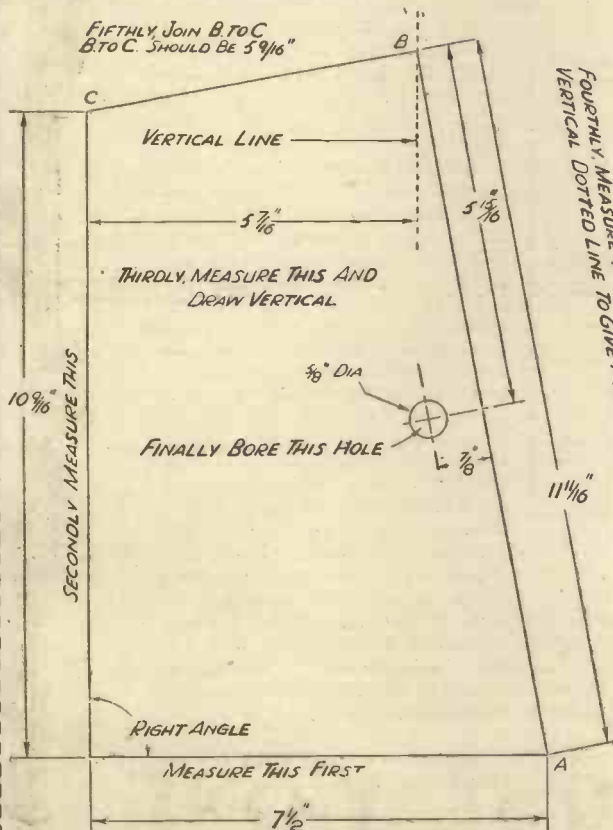 FIFTHLY, JOIN B. TO C
B. TO C. SHOULD BE 5 9/16"
B
C
VERTICAL LINE
5 7/16"
5 15/16"
THIRDLY, MEASURE THIS AND
DRAW VERTICAL
FOURTHLY, MEASURE
VERTICAL DOTTED LINE TO GIVE
10 9/16"
SECONDLY MEASURE THIS
5/8" DIA
FINALLY BORE THIS HOLE
7/8"
11 11/16"
RIGHT ANGLE
MEASURE THIS FIRST
A
7 1/2"